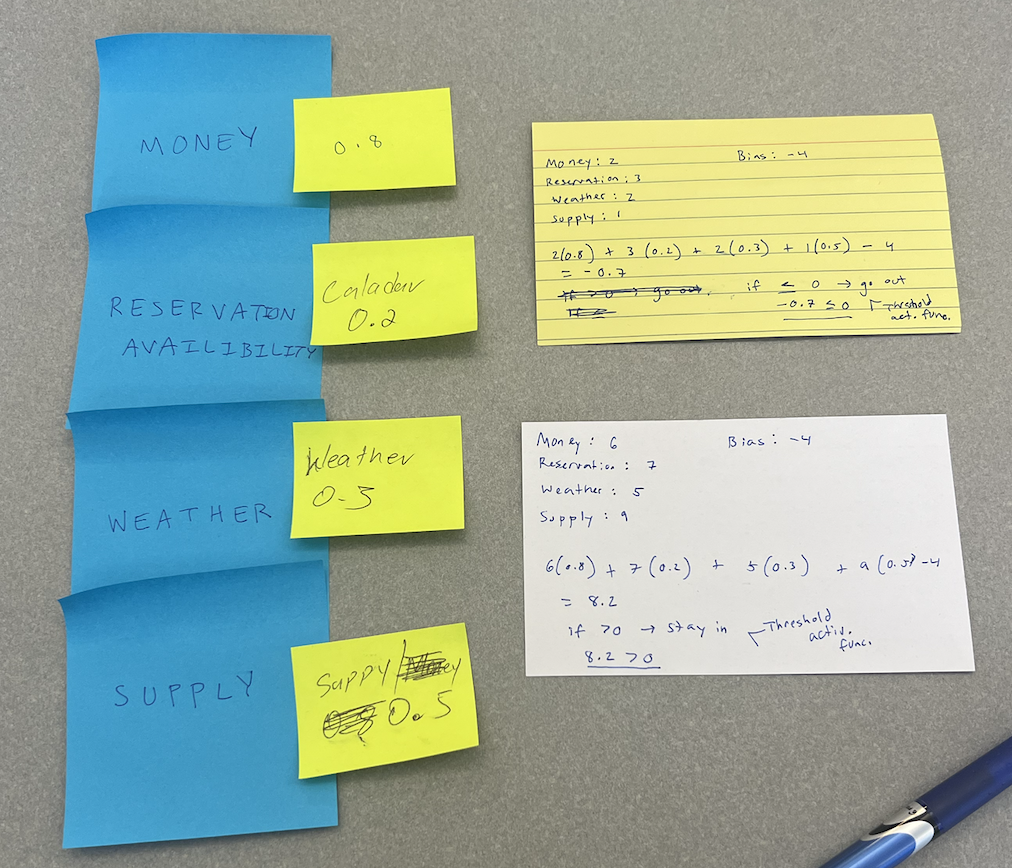 MONEY
0.8
RESERVATION
AVAILIBILITY
Calader
0.2
WEATHER
Weather
0.3
SUPPLY
Suppy/
0.5
Money: 2
Bias: -4
Reservation: 3
Weather: 2
Supply: 1
2(0.8) + 3(0.2) + 2(0.3) + 1(0.5) - 4
= -0.7
if ≤ 0 → go out
-0.7 ≤ 0
Threshold
act. func.
Money: 6
Bias: -4
Reservation: 7
Weather: 5
Supply: 9
6(0.8) + 7(0.2) + 5(0.3) + 9(0.5) - 4
= 8.2
if >0 → stay in
Threshold
activ.
func.
8.2 >0